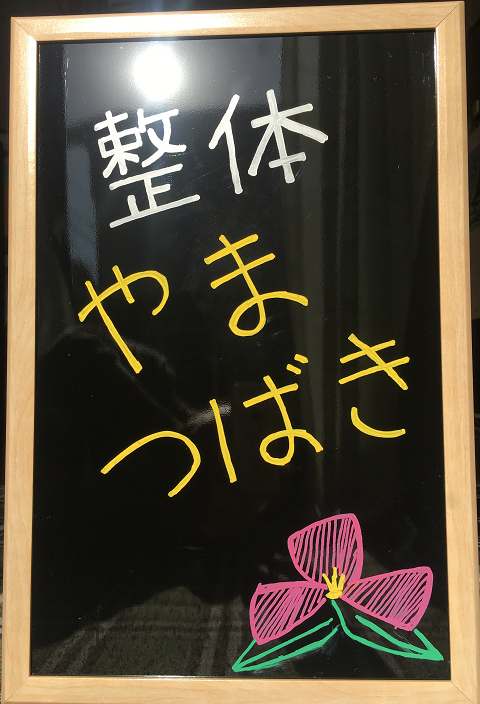 整体
やま
つばき